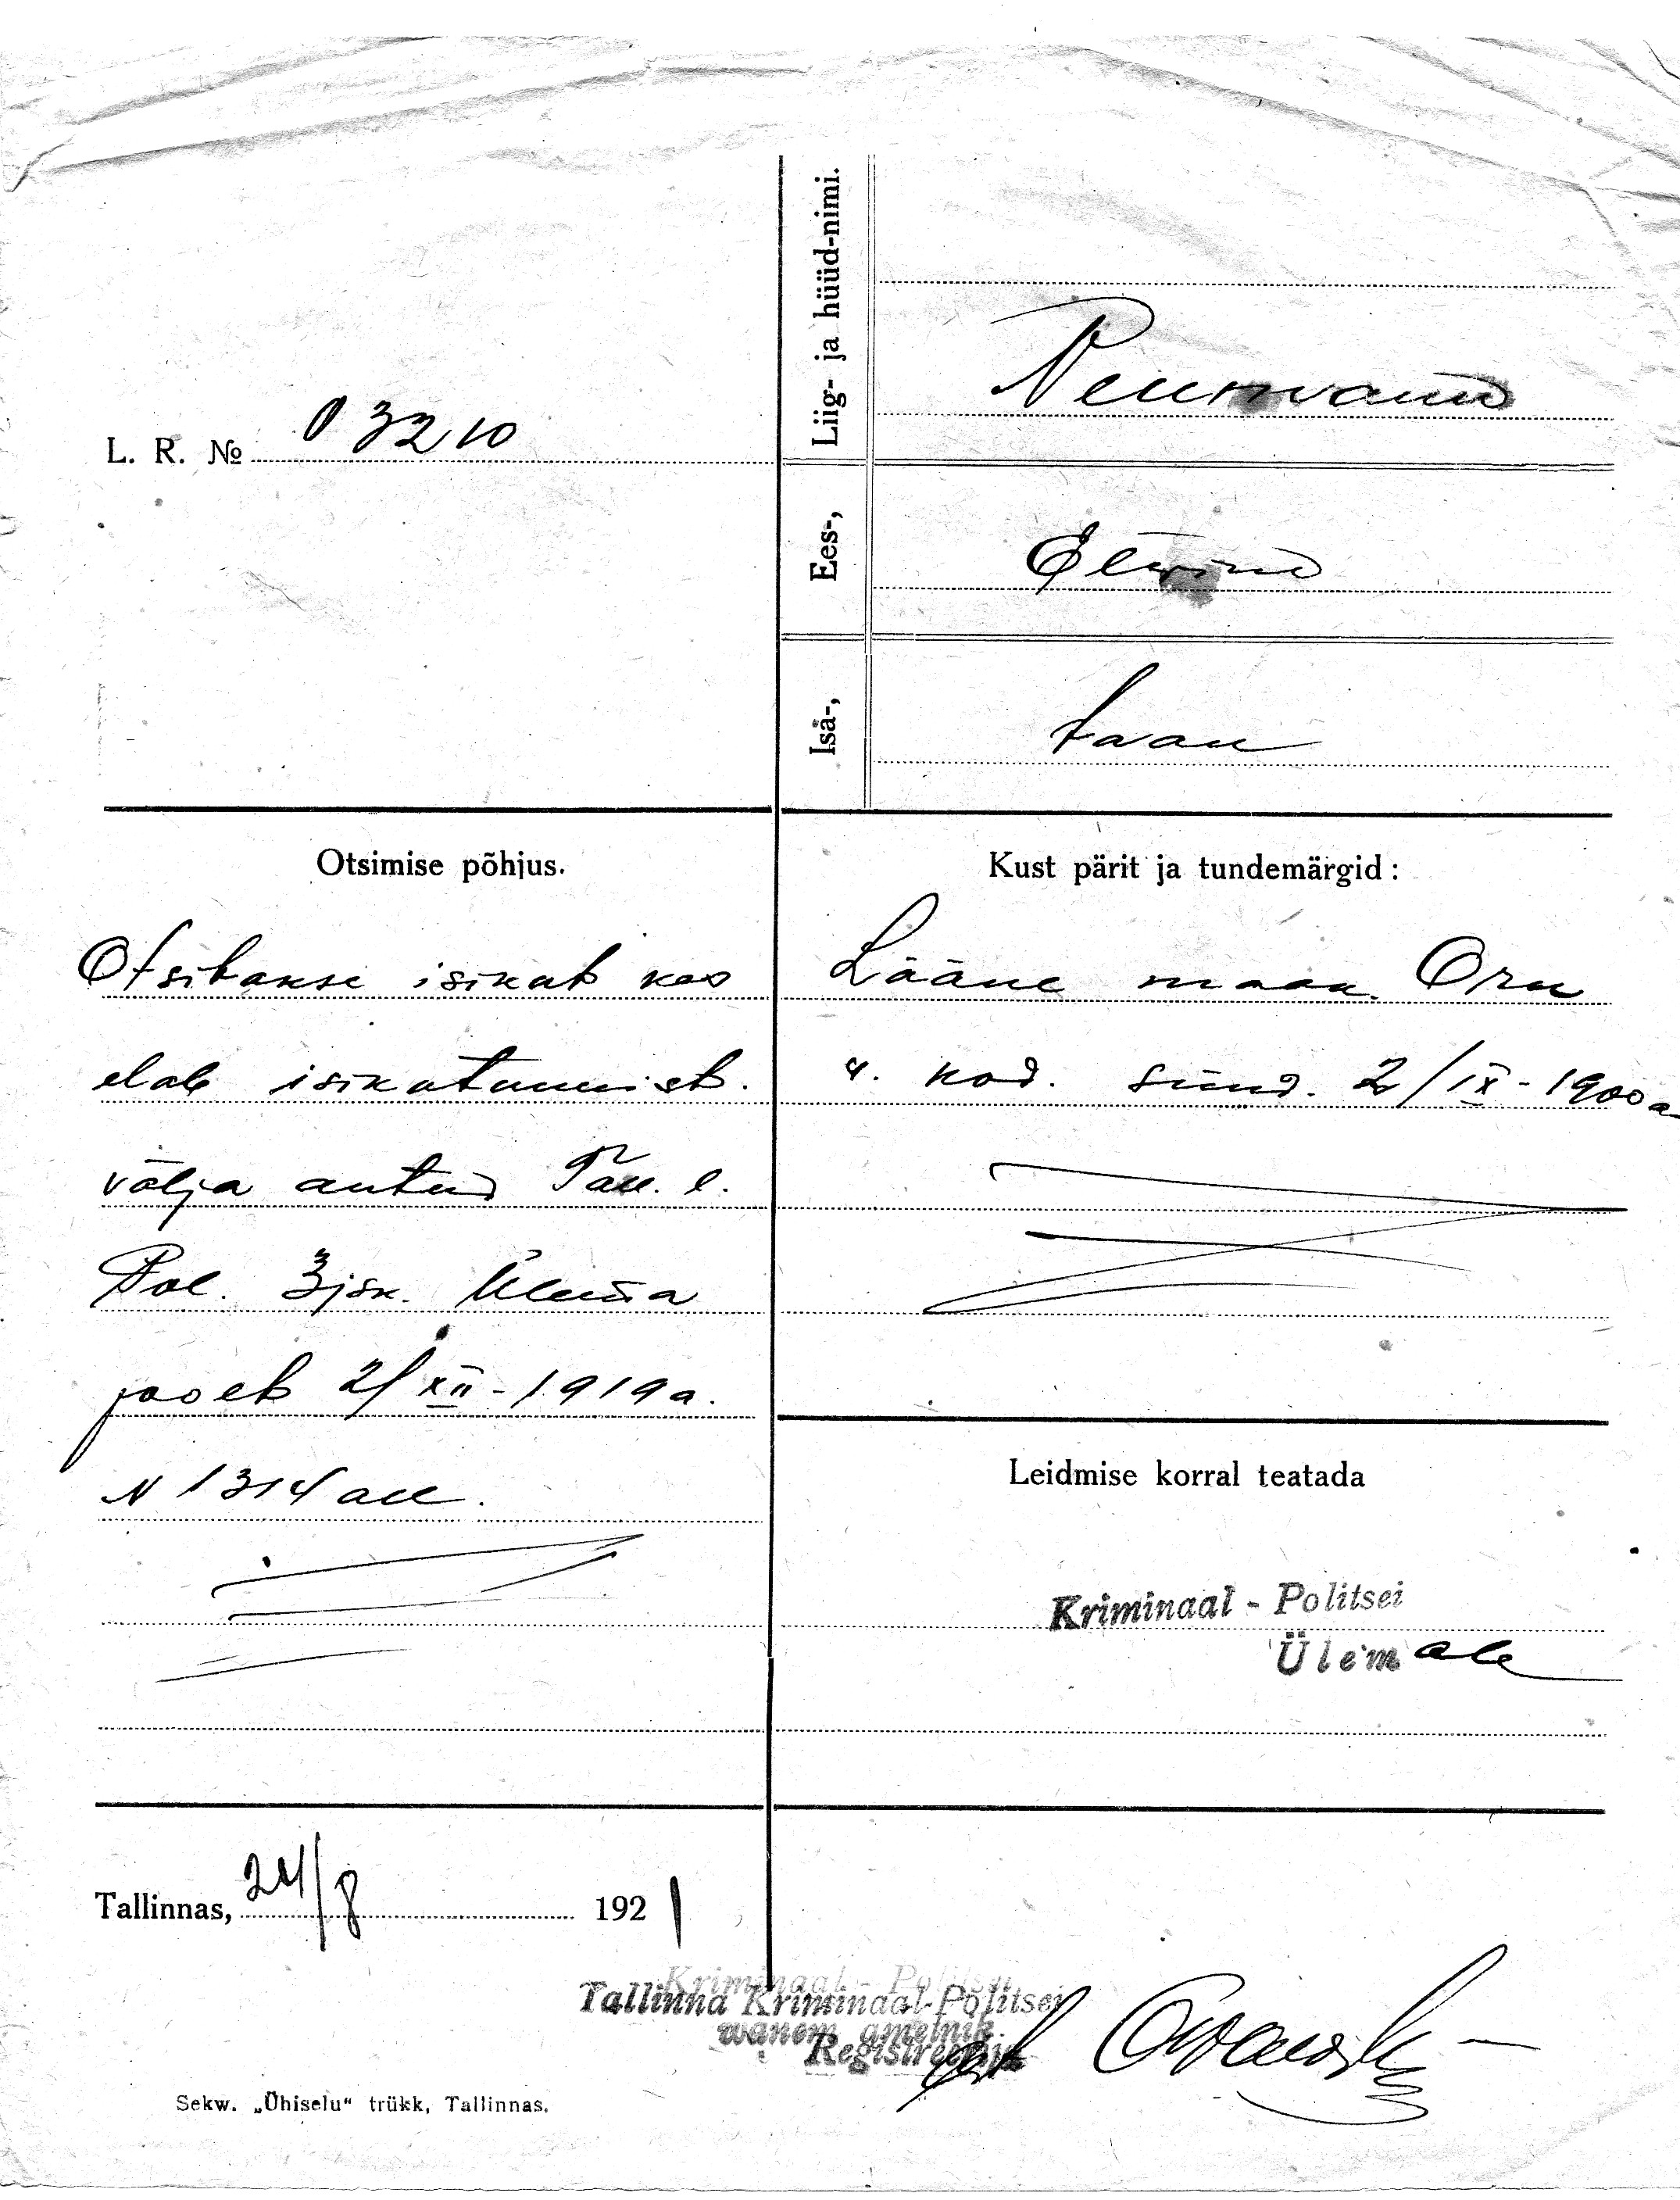 L. R. № 03210
Liig- ja hüüd-nimi.
Neumann
Ees-,
Elwine
Isä-,
Jaan
Otsimise põhjus.
Otsitakse isikut kes
elab isikutunnist.
välja antud Tall. l.
Pol. 3 jsk. Ülema
poolt 2/XII-1919 a.
N 1314 all.
Kust pärit ja tundemärgid:
Lääne maak. Oru
v. kod. sünd. 2/IX-1900 a
Leidmise korral teatada
Kriminaal-Politsei
Ülemale
Tallinnas, 24/8 1921
Kriminaal-Politsei
Tallinna Kriminaal-Politsei
wanem ametnik
Registreerija
Sekw. „Ühiselu“ trükk, Tallinnas.